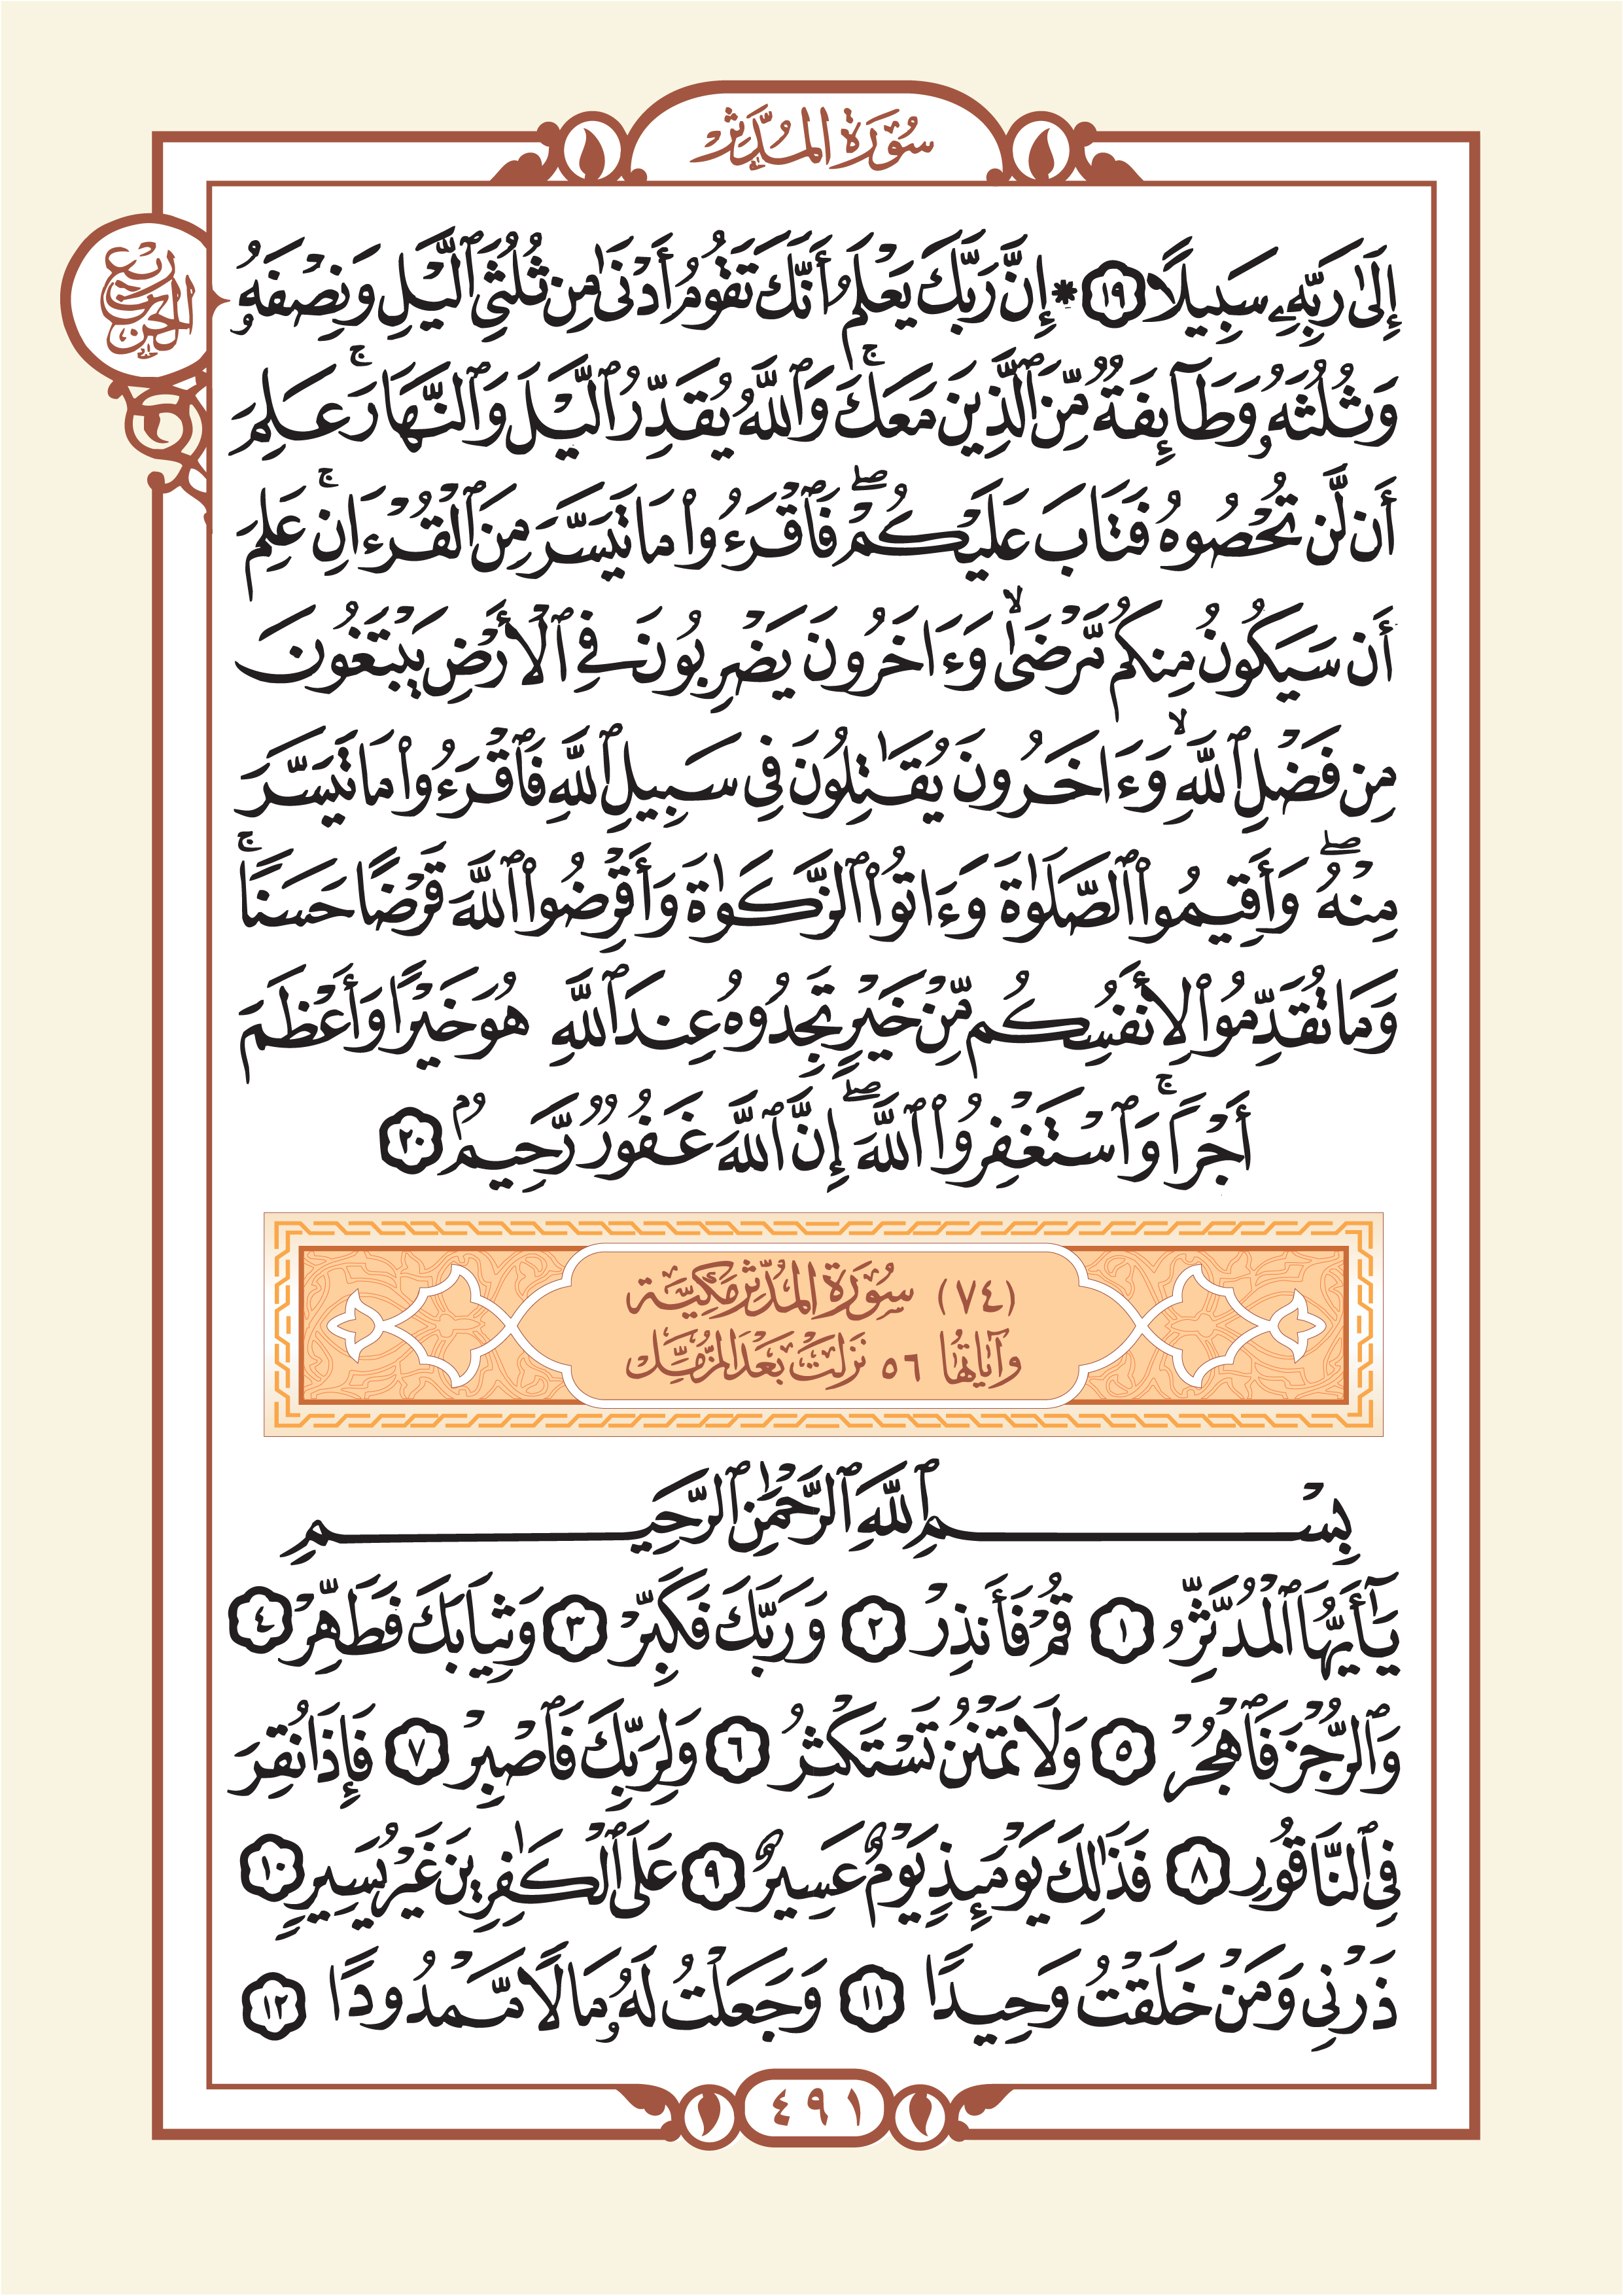 سُورَةُ الْمُدَّثِّرِ
رُبْعُ الْحِزْبِ
إِلَىٰ رَبِّهِۦ سَبِيلًا ١٩ * إِنَّ رَبَّكَ يَعْلَمُ أَنَّكَ تَقُومُ أَدْنَىٰ مِن ثُلُثَىِ ٱلَّيْلِ وَنِصْفَهُۥ
وَثُلُثَهُۥ وَطَآئِفَةٌ مِّنَ ٱلَّذِينَ مَعَكَۚ وَٱللَّهُ يُقَدِّرُ ٱلَّيْلَ وَٱلنَّهَارَۚ عَلِمَ
أَن لَّن تُحْصُوهُ فَتَابَ عَلَيْكُمْۖ فَٱقْرَءُوا۟ مَا تَيَسَّرَ مِنَ ٱلْقُرْءَانِۚ عَلِمَ
أَن سَيَكُونُ مِنكُم مَّرْضَىٰۙ وَءَاخَرُونَ يَضْرِبُونَ فِى ٱلْأَرْضِ يَبْتَغُونَ
مِن فَضْلِ ٱللَّهِۙ وَءَاخَرُونَ يُقَٰتِلُونَ فِى سَبِيلِ ٱللَّهِ فَٱقْرَءُوا۟ مَا تَيَسَّرَ
مِنْهُۖ وَأَقِيمُوا۟ ٱلصَّلَوٰةَ وَءَاتُوا۟ ٱلزَّكَوٰةَ وَأَقْرِضُوا۟ ٱللَّهَ قَرْضًا حَسَنًاۚ
وَمَا تُقَدِّمُوا۟ لِأَنفُسِكُم مِّنْ خَيْرٍ تَجِدُوهُ عِندَ ٱللَّهِ هُوَ خَيْرًا وَأَعْظَمَ
أَجْرًاۚ وَٱسْتَغْفِرُوا۟ ٱللَّهَۖ إِنَّ ٱللَّهَ غَفُورٌ رَّحِيمٌۢ ٢٠
(٧٤) سُورَةُ الْمُدَّثِّرِ مَكِّيَّة
وَآيَاتُهَا ٥٦ نَزَلَتْ بَعْدَ الْمُزَّمِّل
بِسْمِ ٱللَّهِ ٱلرَّحْمَٰنِ ٱلرَّحِيمِ
يَٰٓأَيُّهَا ٱلْمُدَّثِّرُ ١ قُمْ فَأَنذِرْ ٢ وَرَبَّكَ فَكَبِّرْ ٣ وَثِيَابَكَ فَطَهِّرْ ٤
وَٱلرُّجْزَ فَٱهْجُرْ ٥ وَلَا تَمْنُن تَسْتَكْثِرُ ٦ وَلِرَبِّكَ فَٱصْبِرْ ٧ فَإِذَا نُقِرَ
فِى ٱلنَّاقُورِ ٨ فَذَٰلِكَ يَوْمَئِذٍ يَوْمٌ عَسِيرٌ ٩ عَلَى ٱلْكَٰفِرِينَ غَيْرُ يَسِيرٍ ١٠
ذَرْنِى وَمَنْ خَلَقْتُ وَحِيدًا ١١ وَجَعَلْتُ لَهُۥ مَالًا مَّمْدُودًا ١٢
٤٩١